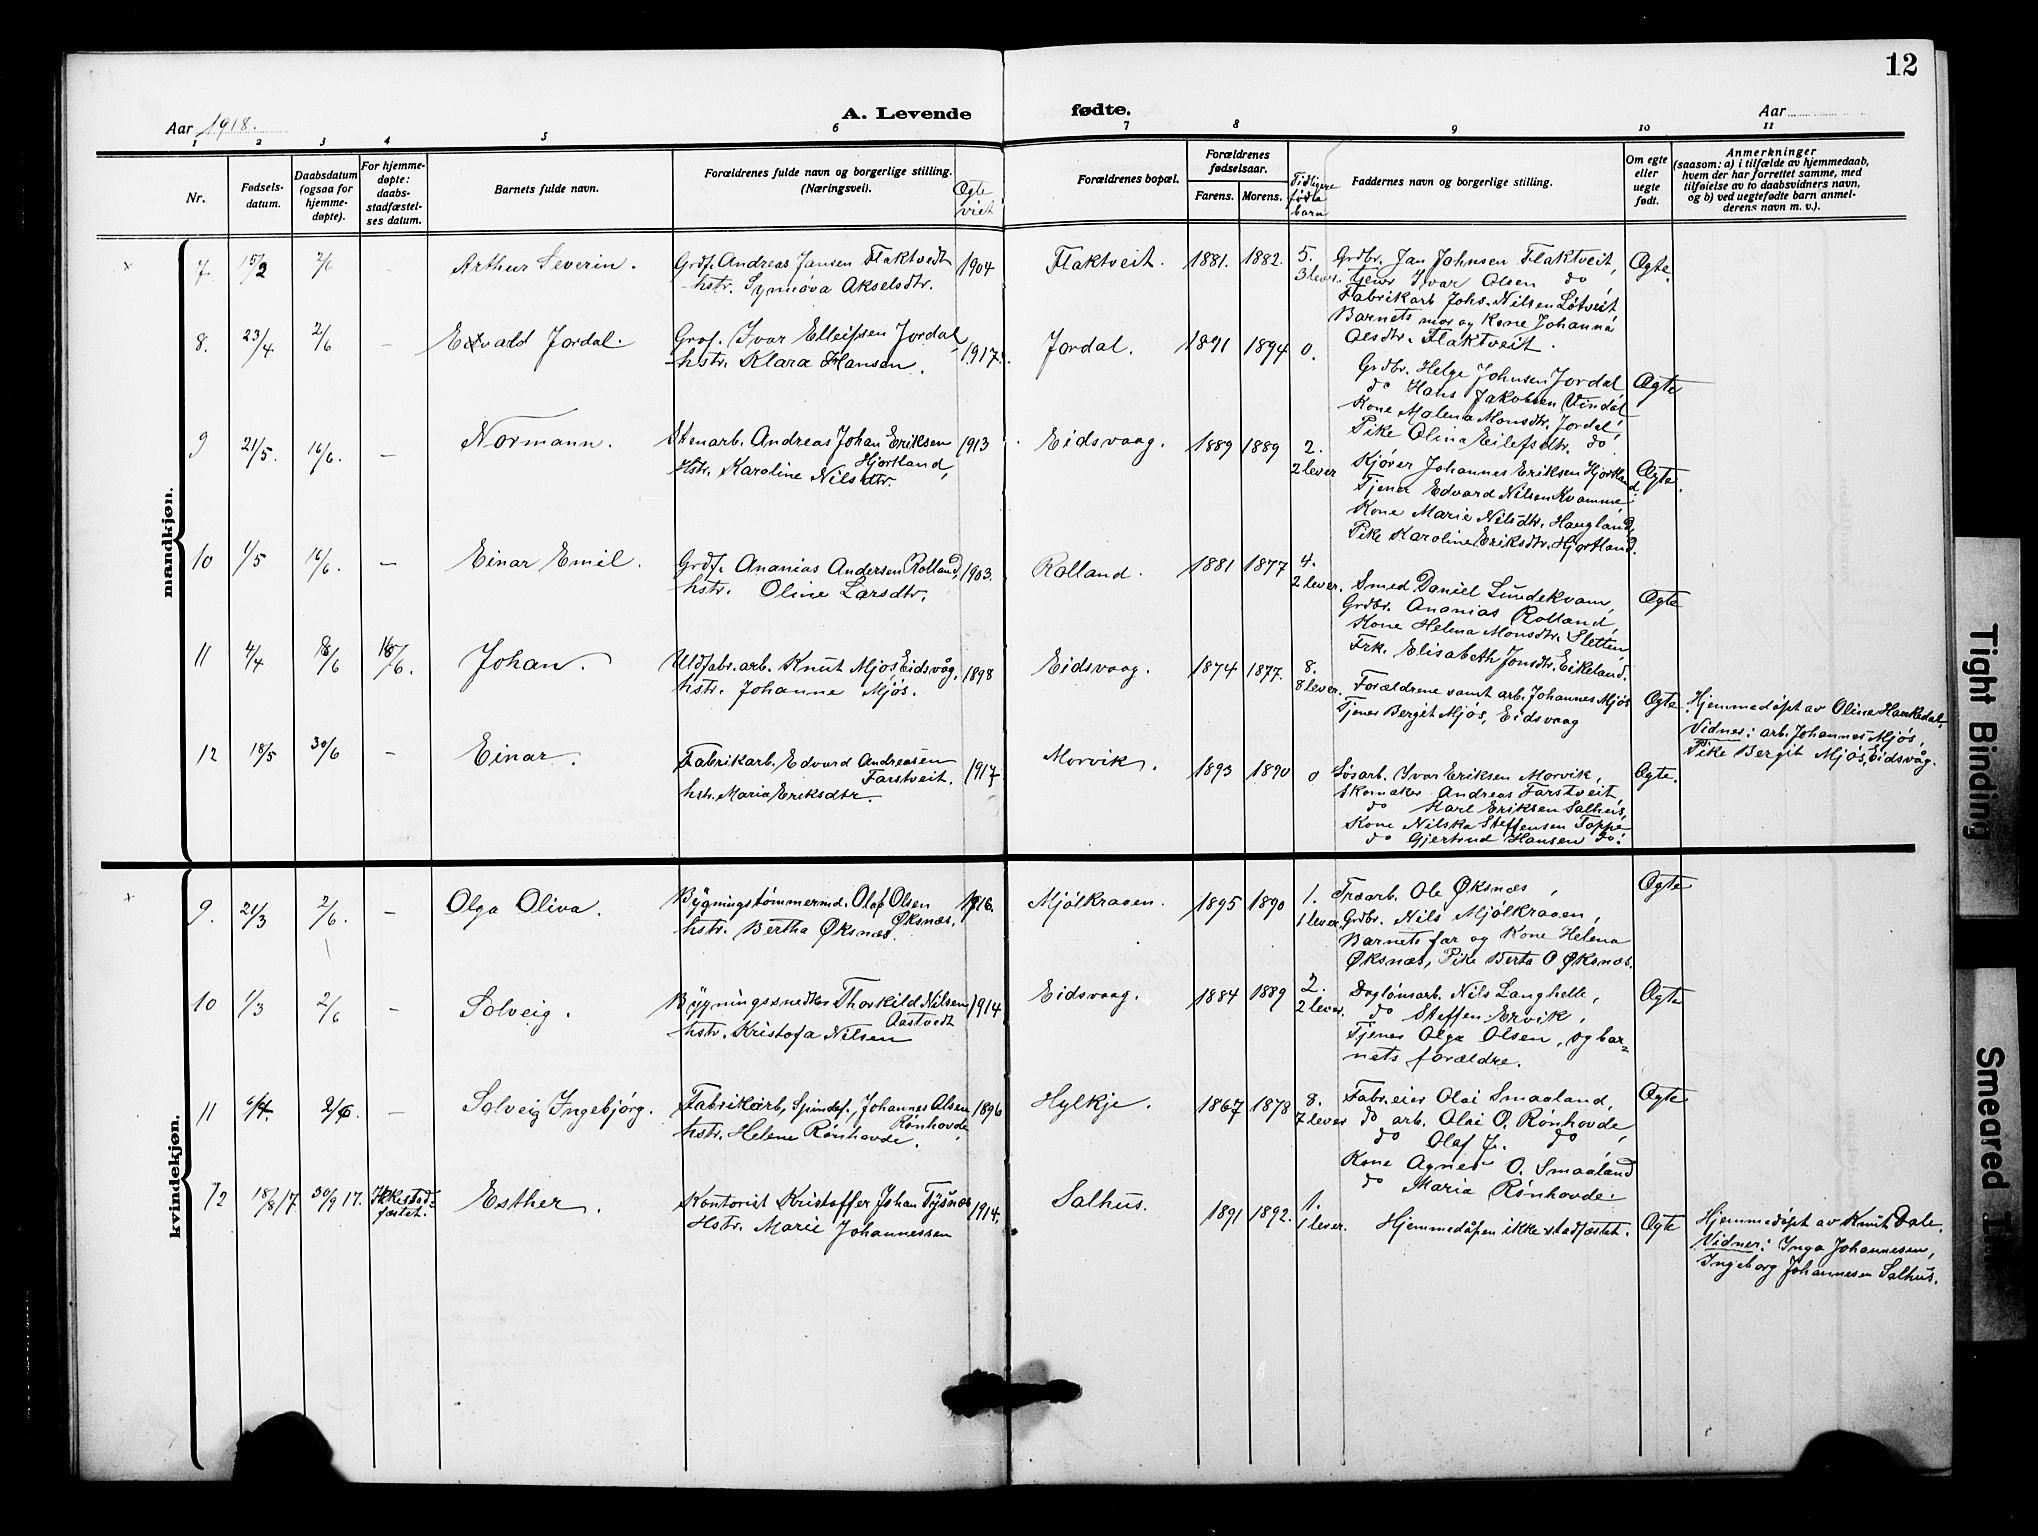 12
A. Levende fødte.
Aar 1918.
Aar
1 2 3 4 5 6 7 8 9 10 11
Nr.
Fødsels-
datum.
Daabsdatum
(ogsaa for
hjemme-
døpte).
For hjemme-
døpte:
daabs-
stadfæstel-
ses datum.
Barnets fulde navn.
Forældrenes fulde navn og borgerlige stilling.
(Næringsvei).
Ægte
viet
Forældrenes bopæl.
Forældrenes
fødselsaar.
Farens. Morens.
Tidligere
fødte
barn
Faddernes navn og borgerlige stilling.
Om egte
eller
uegte
født.
Anmerkninger
(saasom: a) i tilfælde av hjemmedaab,
hvem der har forrettet samme, med
tilføielse av to daabsvidners navn,
og b) ved uegtefødte barn anmel-
derens navn m. v.).
mandkjøn.
7. 15/2 2/6 - Arthur Severin.
Grdf. Andreas Jansen Flaktvedt
hstr. Synnøva Akselsdtr.
1904 Flaktveit. 1881. 1882. 5.
3 lever.
Grdbr. Jan Johnsen Flaktveit,
tjener Ivar Olsen do
Fabrikarb Johs. Nilsen Løtveit
Barnets mor og Kone Johanna
Olsdtr. Flaktveit.
Ægte.
8. 23/4 2/6 - Edvald Jordal.
Grdf. Ivar Elleifsen Jordal
hstr. Klara Hansen.
1917. Jordal. 1891 1894 0.
Grdbr. Helge Johnsen Jordal
do Hans Jakobsen Vindal
Kone Malena Monsdtr. Jordal,
Pike Olina Eilefsdtr. do.
Ægte
9 21/5. 16/6. - Normann.
Stenarb. Andreas Johan Eriksen
Hjortland,
Hstr. Karoline Nilsdtr.
1913 Eidsvaag. 1889 1889 2.
2 lever
Kjører Johannes Eriksen Hjortland
Tjener Edvard Nilsen Kvamme
Kone Marie Nilsdtr. Haugland,
Pike Karoline Eriksdtr. Hjortland.
Ægte.
10 1/5 16/6. - Einar Emil.
Grdf. Ananias Andersen Rolland,
hstr. Oline Larsdtr.
1903. Rolland. 1881 1877 4.
2 lever.
Smed Daniel Lundekvam,
Grdbr. Ananias Rolland,
Kone Helena Monsdtr. Sletten,
Frk. Elisabeth Jonsdtr. Eikeland.
Ægte
11 4/4 /6 16/6. Johan.
Uldfabr. arb. Knut Mjøs Eidsvåg.
hstr. Johanne Mjøs.
1898 Eidsvaag. 1874 1877. 8.
8 lever.
Forældrene samt arb. Johannes Mjøs
Tjener Bergit Mjøs, Eidsvaag
Ægte
Hjemmedøpt av Oline Haukedal,
Vidner: arb. Johannes Mjøs,
Pike Bergit Mjøs, Eidsvåg.
12 18/5 30/6 - Einar.
Fabrikarb. Edvard Andreasen
Farstveit.
hstr. Maria Eriksdtr.
1917 Morvik. 1893 1890 0
Løsarb. Ivar Eriksen Morvik,
Skomaker Andreas Farstveit
do Karl Eriksen Salhus,
Kone Nilska Steffensen Toppe
do Gjertrud Hansen do.
Ægte.
kvindekjøn.
9. 21/3 2/6. - Olga Oliva.
Bygningstømmermd. Olaf Olsen
Øksnæs,
hstr. Bertha Øksnæs.
1916. Mjølkraaen. 1895 1890 1.
1 lever.
Træarb. Ole Øksnæs,
Grdbr. Nils Mjølkraaen,
Barnets far og Kone Helena
Øksnæs, Pike Berta O Øksnæs.
Ægte
10 1/3 2/6 - Solveig.
Bygningssnedker Thorkild Nilsen
Aastvedt
hstr. Kristofa Nilsen
1914 Eidsvaag. 1884 1889 2.
2 lever
Daglønsarb. Nils Langhelle,
do Steffen Ervik,
Tjenes Olga Olsen, og bar=
nets forældre.
Ægte
11 6/4. 2/6 - Solveig Ingebjørg.
Fabrikarb. Spindef. Johannes Olsen
Rønhovde,
hstr. Helene Rønhovde.
1896 Hylkje. 1867 1878 8.
7 lever
Fabr. eier Olai Smaaland,
do arb. Olai O. Rønhovde,
do Olaf J. do
Kone Agnes O. Smaaland
do Maria Rønhovde.
Ægte
12 18/8 17 30/9 17. Ikke stad-
fæstet. Esther.
Kontorist Kristoffer Johan Tysnæs
Hstr. Marie Johannessen
1914. Salhus. 1891 1892. 1.
1 lever.
Hjemmedåpen ikke stadfæstet.
Ægte
Hjemmedøpt av Knut Dale.
Vidner: Inga Johannesen,
Ingeborg Johannesen Salhus.
Tight Binding
Smeared